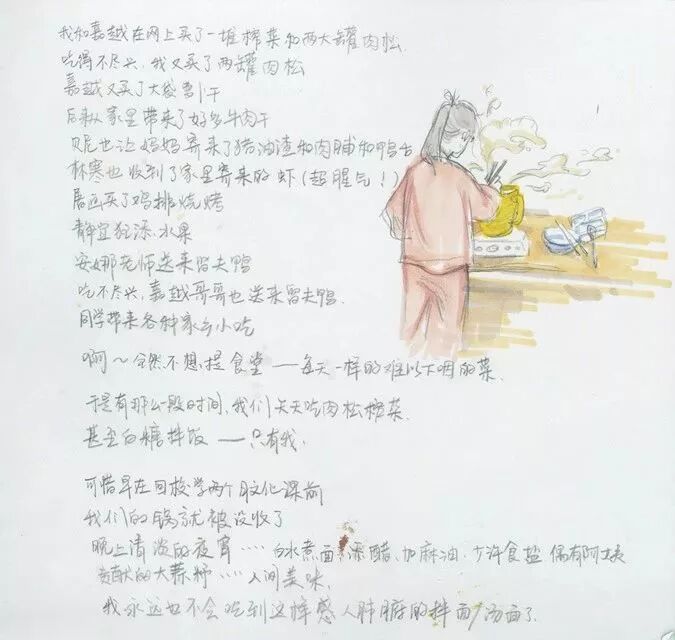 我和嘉越在网上买了一堆榨菜和两大罐肉松.
吃得不尽兴.我又买了两罐肉松
嘉越又买了大袋 干
后来从家里带来了好多牛肉干
贝妮也让妈妈寄来了猪油渣和肉脯和鸭舌
林寒也收到了家里寄来的虾(超腥气!)
买了鸡排烧烤
静宜狂添水果
安娜老师送来留夫鸭
吃不尽兴.嘉越哥哥也送来留夫鸭.
同学带来各种家乡小吃
啊~全然不想提食堂——每天一样的难以下咽的菜.
于是有那么一段时间,我们天天吃肉松榨菜.
甚至白糖拌饭——只有我.
可惜早在回校学两个月文化课前
我们的锅就被没收了
晚上清淡的夜宵····白水煮面.添醋.加麻油.少许食盐 偶有阿姨
贡献的大蒜籽····人间美味.
我永远也不会吃到这样感人肺腑的拌面/汤面了.